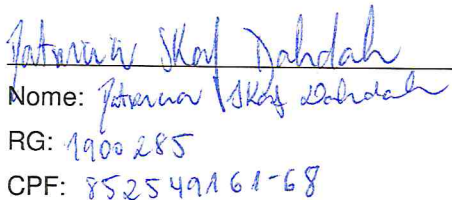 Patricia Skaf Dahdah
Nome: Patricia Skaf Dahdah
RG: 1900285
CPF: 852549161-68